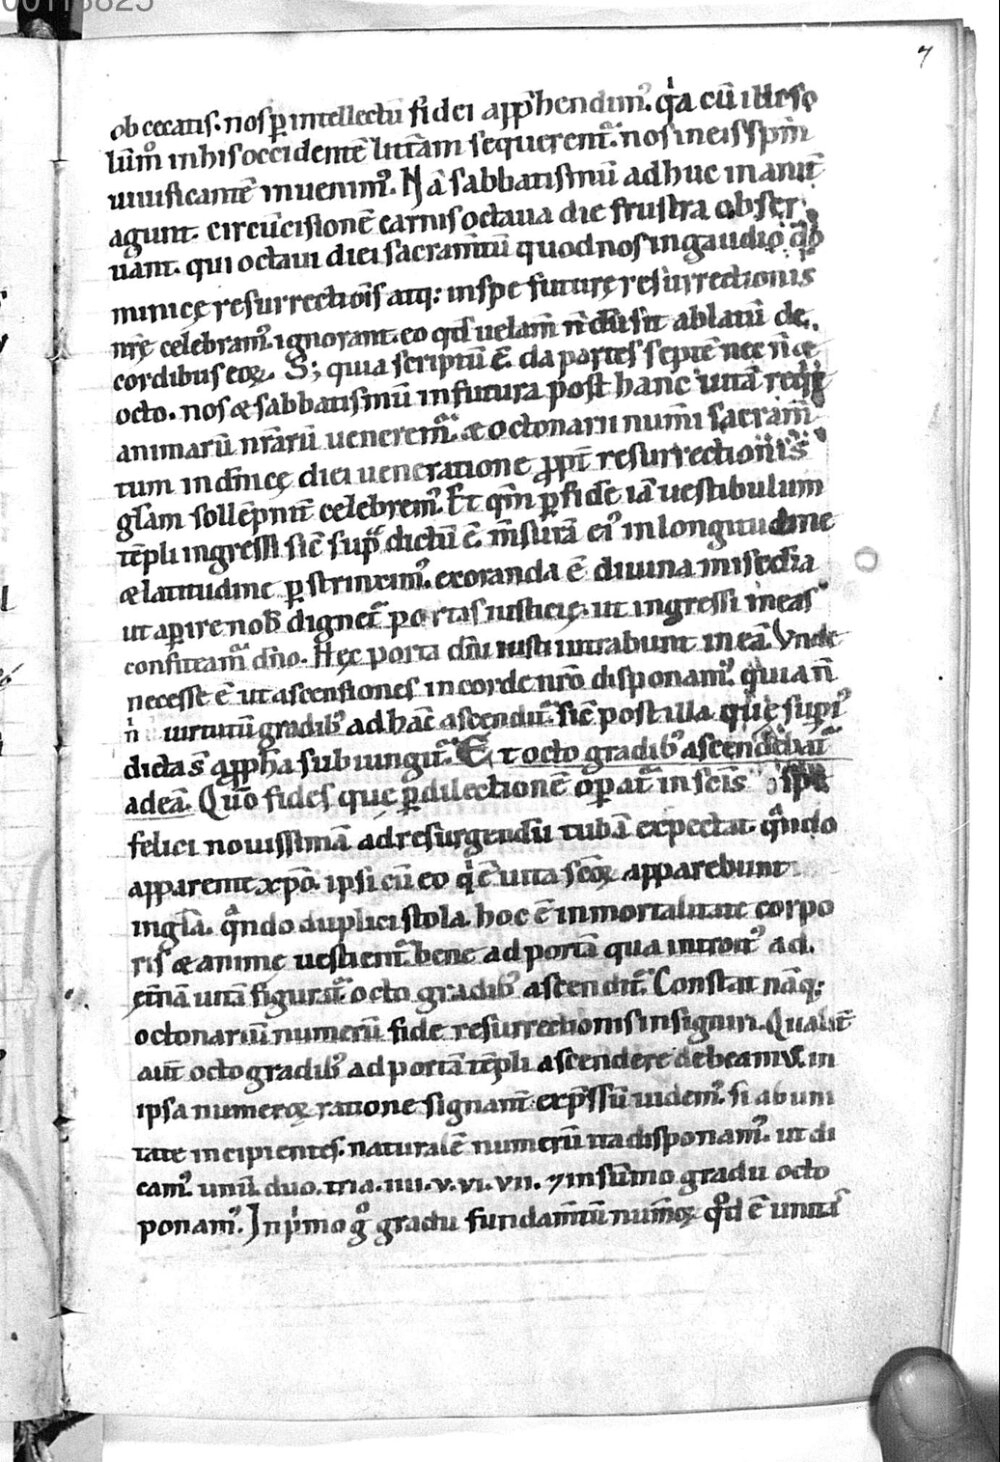 00113825
7
obcecatis. nos ꝑ intellectū fidei app̄hendim᷒. qͥa cū illi so
lūm̊ in his occidentē litt̄am sequerent᷑. nos in eis sp̄m
uiuificantē inuenim᷒. Nā sabbatismū adhuc inanit̄
agunt. circūcisionē carnis octaua die frustra obser
uant. qui octaui diei sacram̄tū quod nos in gaudio do
minicę resurrectiōis atq: in spe futurę resurrectionis
nr̄ę celebram᷒. ignorant. eo qd̄ uelam̄ n̄dū sit ablatū de
cordibus eoꝝ. S; quia scriptū ē. da partes septē nec n̄ &
octo. nos & sabbatismū in futura post hanc uitā requie
animarū nr̄arū uenerem᷒. & octonarii num̄i sacram̄
tum in dn̄icę diei ueneratione ꝓpt̄ resurrectionis
gl̄am sollēpnit̄ celebrem᷒. Et qm̄ ꝑ fidē iā uestibulum
tēpli ingressi sic̄ sup̄ dictū ē. m̄surā ei᷒ in longitudine
& latitudine ꝑstrinxim᷒. exoranda ē diuina mis̄cdia
ut aꝑire nob̄ dignet᷑ portas iusticię. ut ingressi in eas
confiteam᷑ dn̄o. Hęc porta dn̄i iusti intrabunt in eā. Vnde
necesse ē ut ascensiones in corde nr̄o disponam᷒. quia n̄
n̄ uirtutū gradib᷒ ad hāc ascendit᷑. sic̄ post illa quę supi᷒
dicta s̄ a ꝓph̄a subiungit᷑. Et octo gradib᷒ ascendebat᷑
ad eā. Qm̄ fides que ꝑ dilectionē oꝑat᷑ in scīs spe
felici nouissimā ad resurgendū tubā expectat. qn̄do
apparente xp̄o. ipsi cū eo qͥ ē uita s̄coꝝ apparebunt
in gl̄a. qn̄do duplici stola. hoc ē inmortalitate corpo
ris & animę uestient᷑. bene ad portā qua introit᷒ ad
ęt̄nā uitā figurat᷑. octo gradib᷒ ascendit᷑. Constat nāq:
octonariū numerū fidē resurrectionis insigniri. Qualit̄
aut̄ octo gradib᷒ ad portā tēpli ascendere debeamus. in
ipsa numeroꝝ ratione signant̄ exp̄ssū uidem᷒. si ab uni
tate incipientes. naturalē numerū ita disponam᷒. ut di
cam᷒ unū. duo. tria. iiii. v. vi. vii. ⁊ in sūmo gradu octo
ponam᷒. In pͥmo gͦ gradu fundam̄tū num̄oꝝ qd̄ ē unitā